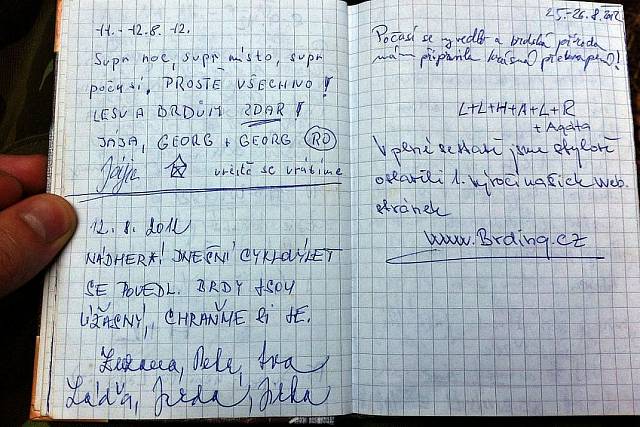 11.-12.8.12.
Supr noc, supr místo, supr
počasí, PROSTĚ VŠECHNO!
LESU A BRDŮM ZDAR!
JÁJA, GEORG + GEORG RO
Jája určitě se vrátíme
12.8.2012
NÁDHERA! DNEŠNÍ CYKLOVÝLET
SE POVEDL. BRDY JSOU
ÚŽASNÝ, CHRAŇME SI JE.
Zuzana, Iva
Láďa, Jitka
25.-26.8.2012
Počasí se vyvedlo a brdská příroda
nám připravila krásná překvapení!
L+L+H+A+L+R
+ Agáta
V plené se stati jsme stylově
oslavili 1. výročí našich web.
stránek
www.Brding.cz